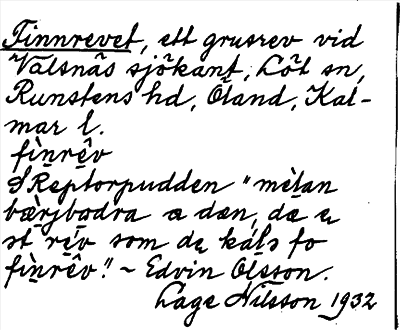 Finnrevet, ett grusrev vid
Valsnäs sjökant, Löt sn,
Runstens hd, Öland, Kal-
mar l.
fìn̲rêv
S Reptorpudden "mèl̲an
bær̲jbodra a dæn, dæ e̲
st ré̲v som de̲ kál̲s fo
fìn̲rêv." ~ Edvin Olsson.
Låge Nilsson 1932